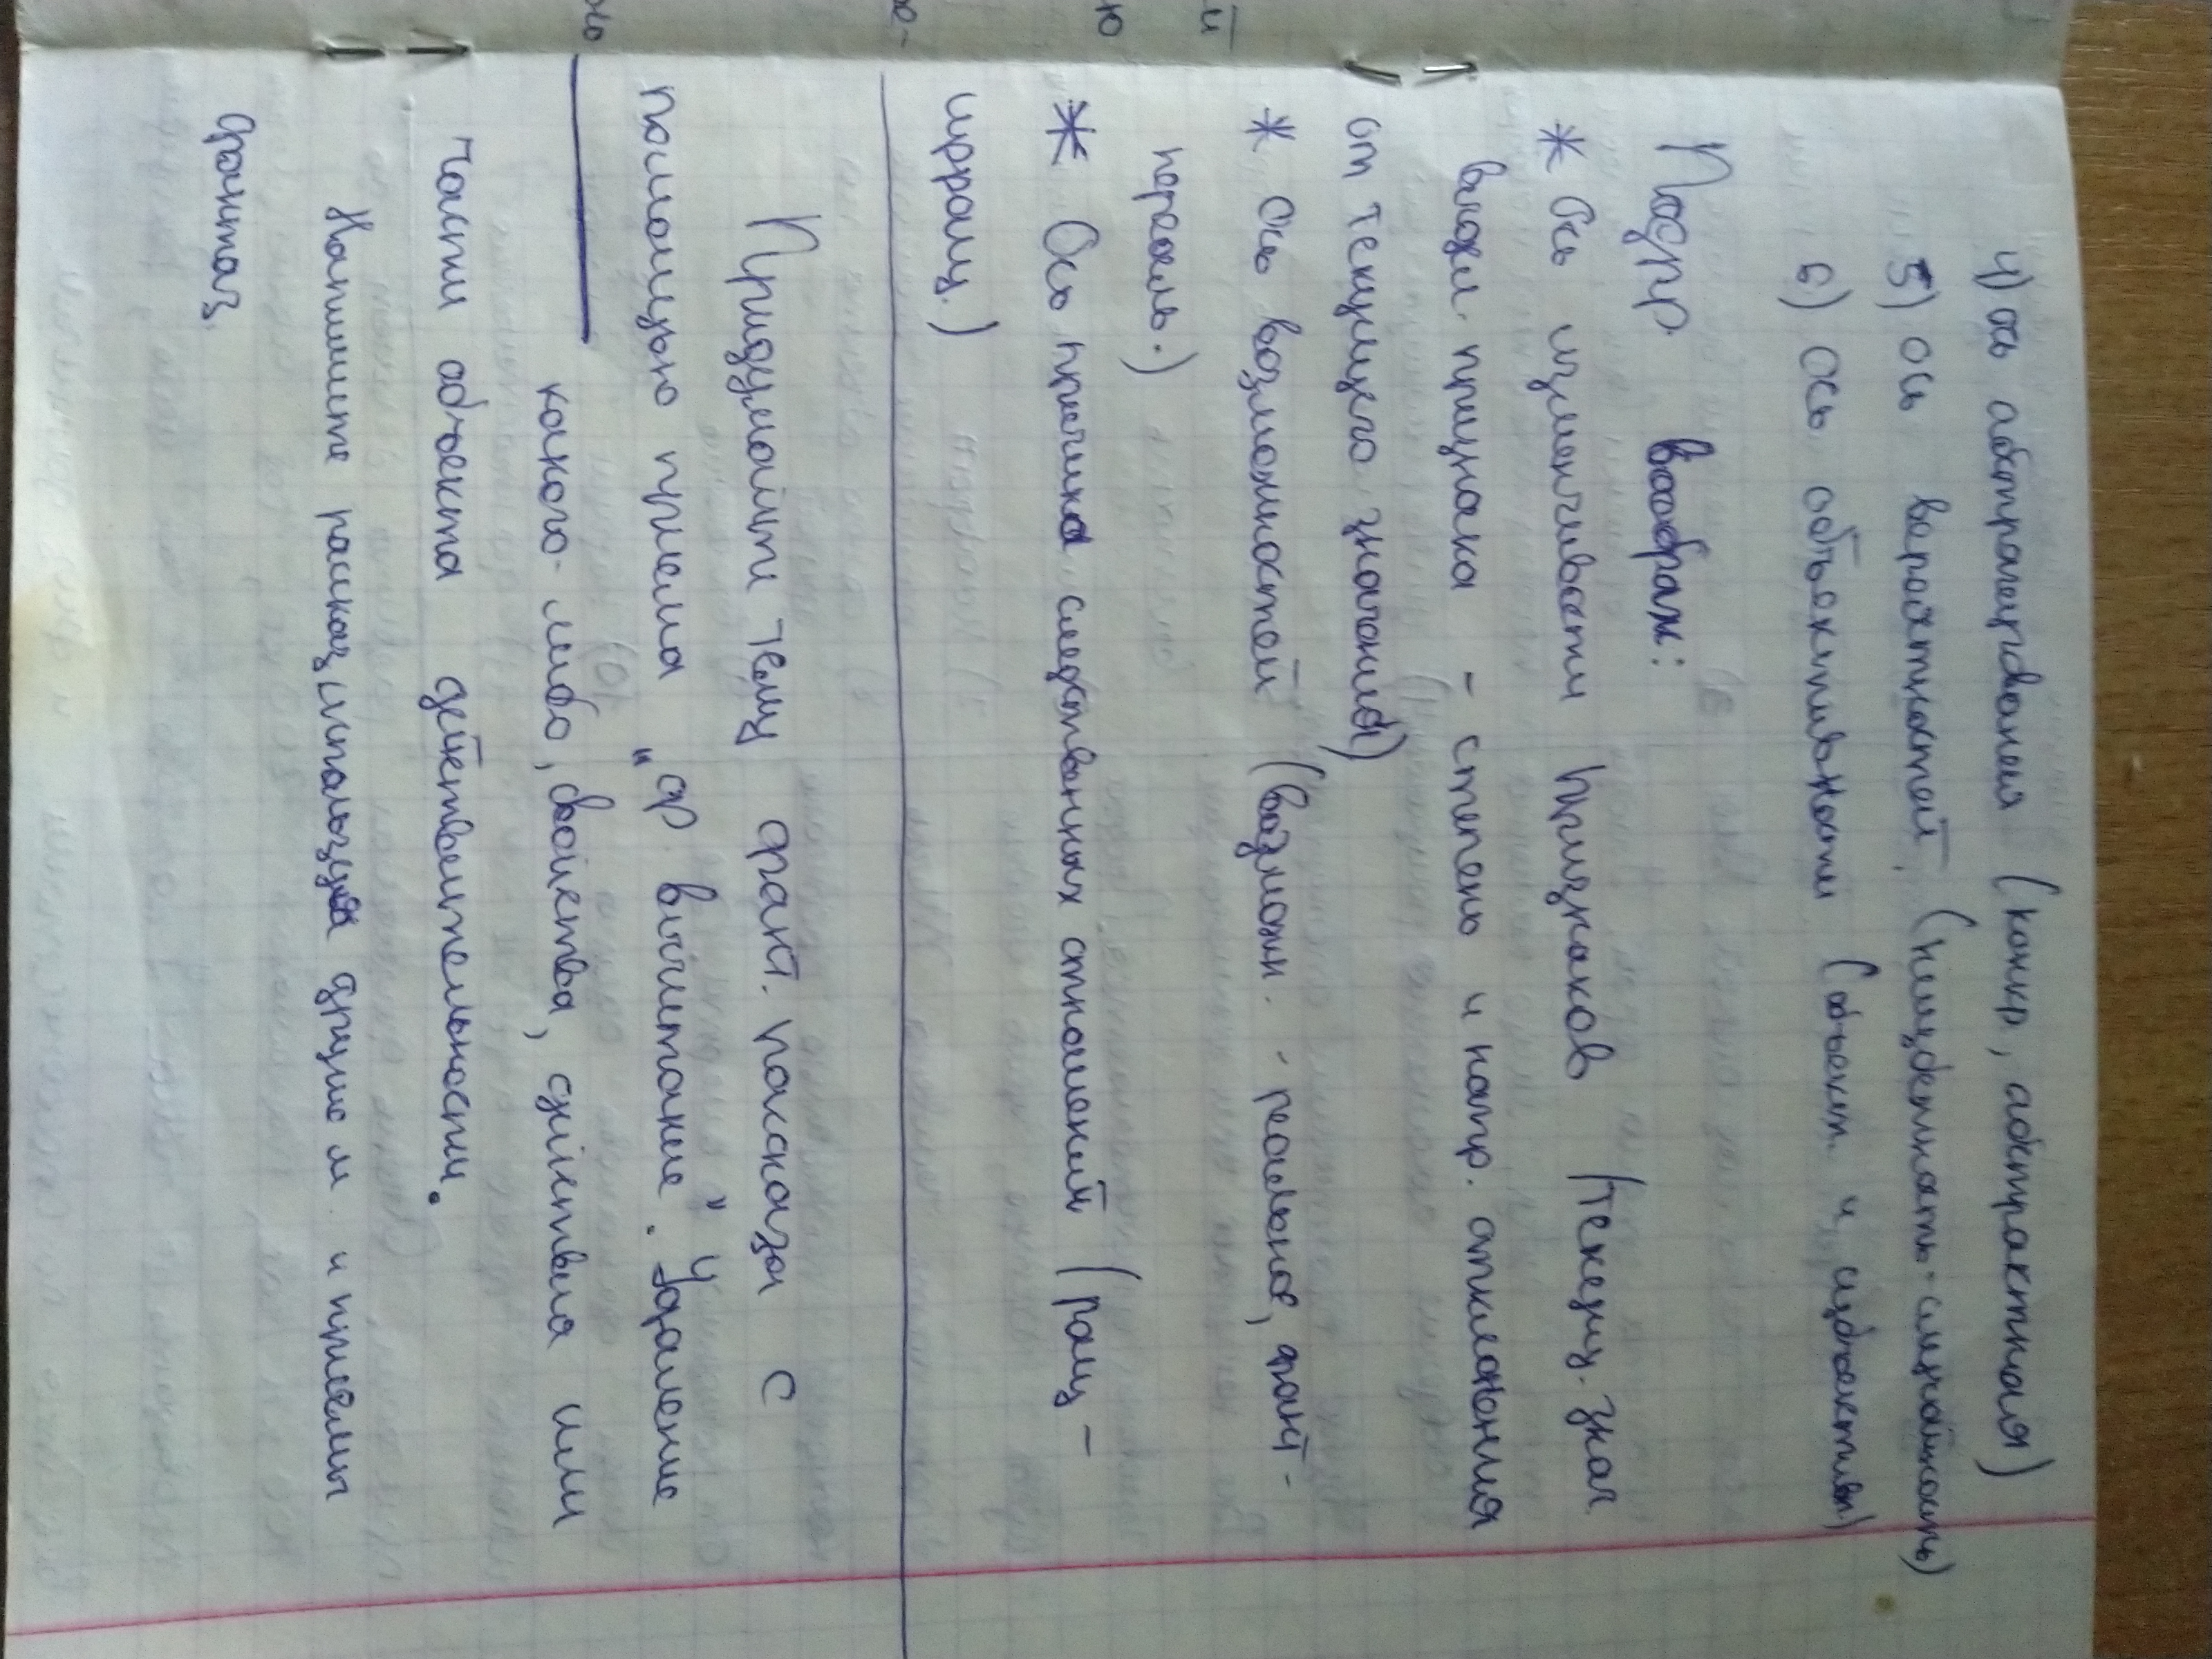 4) ось абстрагирования (конкр, абстрактная)
5) ось вероятностей (неизбежность-случайность)
6) Ось объективности (объект. и субъектив.)
Подр. воображ:
* Ось изменчивости признаков (текущ. знач
важн. признака - степень и напр. отклонения
от текущего значения)
* Ось возможностей (возможн. - реальное, фант-
нереаль.)
* Ось причинно следственных отношений (рац-
иррац.)
Придумайти тему фант. рассказа с
помощью приема "ф. вычитание". Удаление
какого-либо, свойства, действия или
части объекта действительности.
Напишите рассказ используя другие м и приемы
фантаз.
й
ю
же-
нь